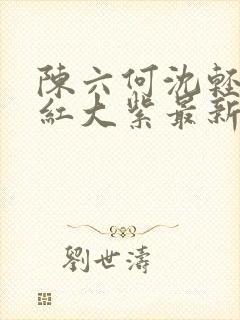 陳六何沈輕
紅大紫最新
劉世濤